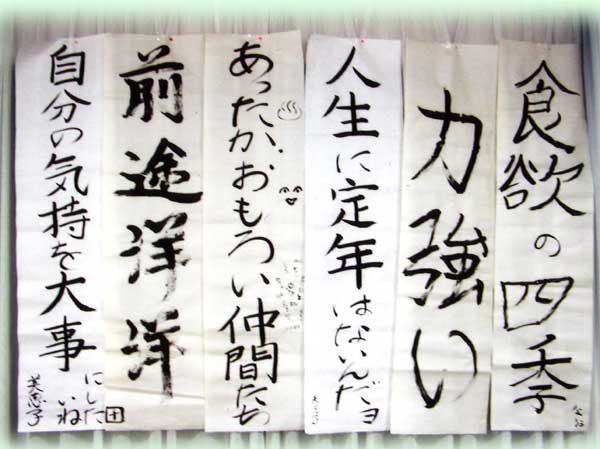 食欲の四季
力強い
人生に定年はないんだョ
あったか、おもろい仲間たち
前途洋洋
自分の気持を大事
にした
いね